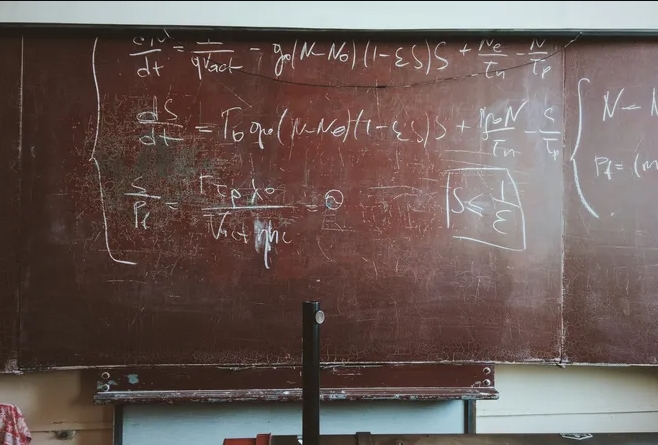 dN/dt = 1/qVact - g₀(N-N₀)(1-εS)S + Ne/τn - N/τp
dS/dt = Γ₀g₀(N-N₀)(1-εS)S + N/τn - S/τp
S/Pf = Γτpλ₀/Vactηhc = ϑ
S ≤ 1/ε
N -
Pf = (m